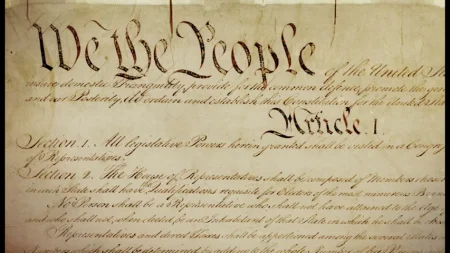 We the People of the United Sta
insure domestic Tranquility, provide for the common defence, promote the gen
and our Posterity, do ordain and establish this Constitution for the United Sta
Article. I.
Section. 1. All legislative Powers herein granted shall be vested in a Congress
of Representatives.
Section. 2. The House of Representatives shall be composed of Members chosen
in each State shall have Qualifications requisite for Electors of the most numerous Branch
No Person shall be a Representative who shall not have attained to the Age
and who shall not, when elected, be an Inhabitant of that State in which he shall be
Representatives and direct Taxes shall be apportioned among the several States
Numbers, which shall be determined by adding to the whole Number of